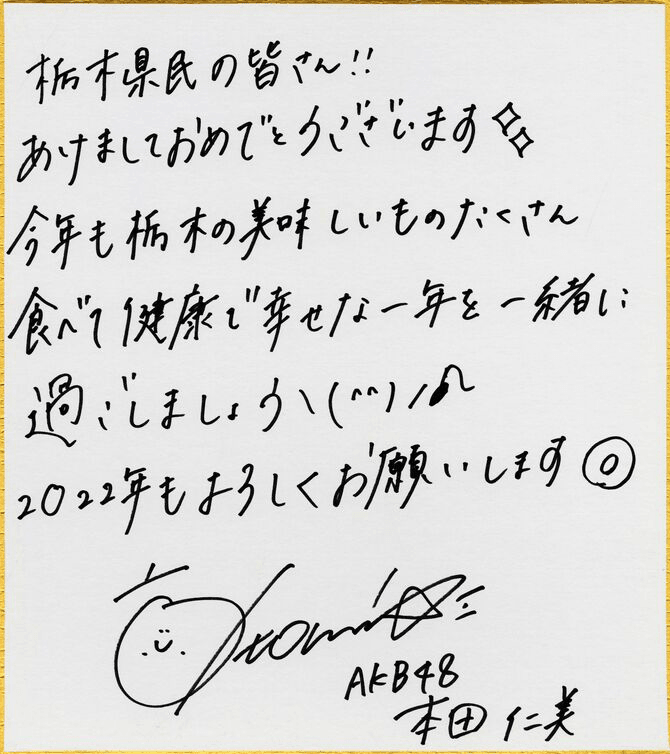 栃木県民の皆さん!!
あけましておめでとうございます
今年も栃木の美味しいものたくさん
食べて健康で幸せな一年を一緒に
過ごしましょうヽ(^^)ノ♪
2022年もよろしくお願いします
AKB48
本田 仁美